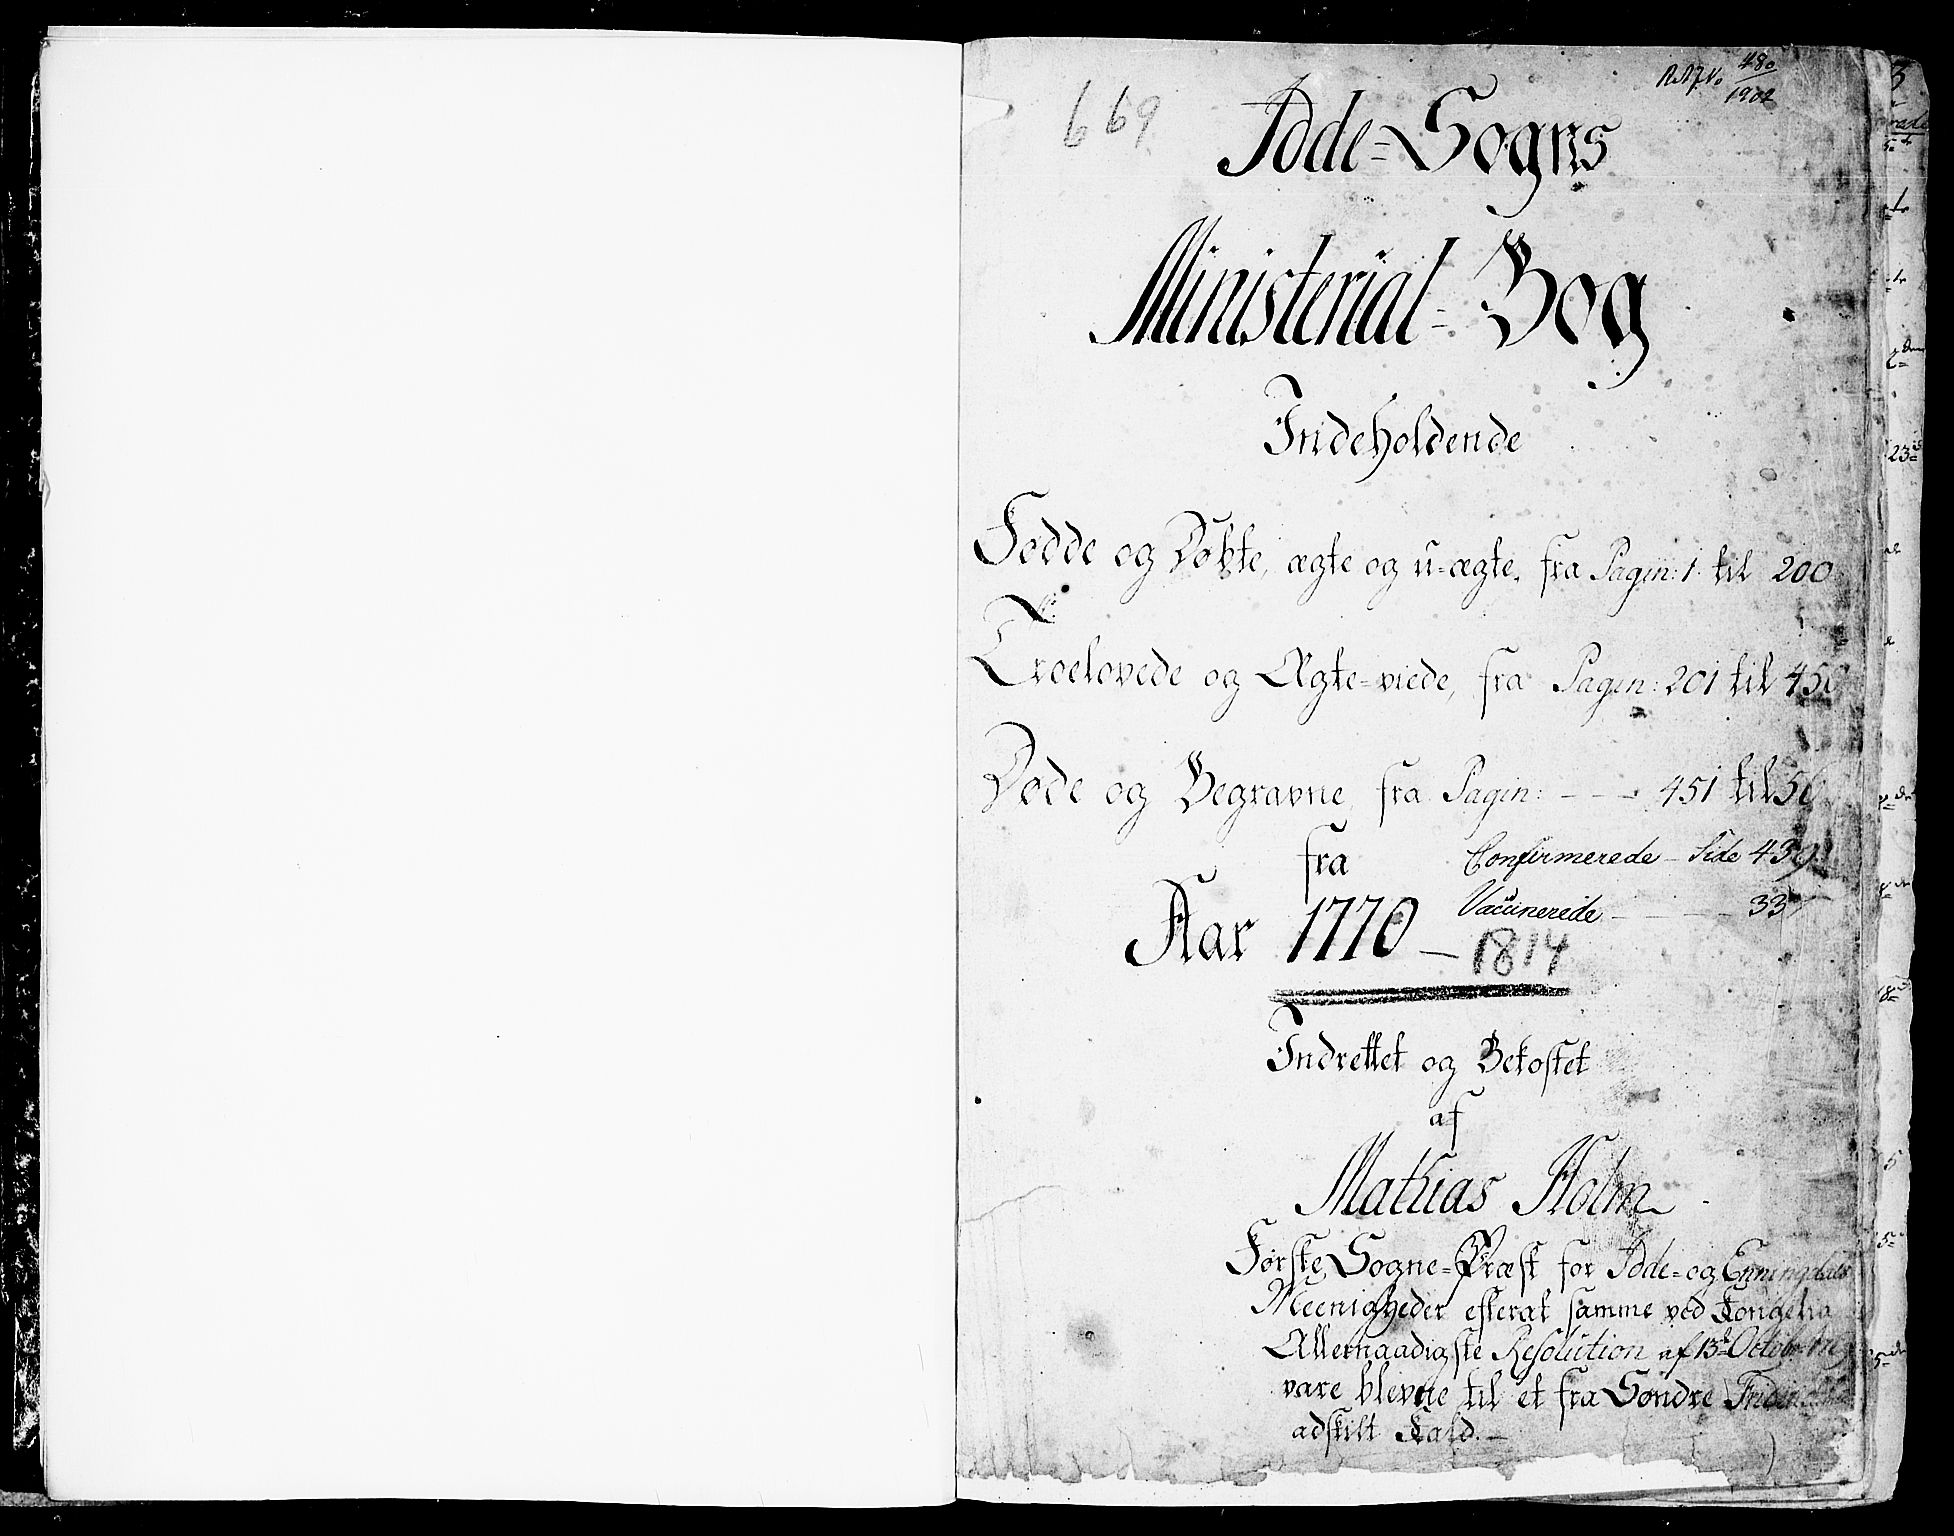 669
480
1902
Idde=Sogns
Ministerial=Bog
Indeholdende
Fødde og Døbte, ægte og u=ægte, fra Pagin: 1 til 200
Troelovede og Ægte=viede, fra Pagin: 201 til 450
Døde og Begravne, fra Pagin: - - - 451 til 56
fra
Confirmerede - Side 439
Aar 1770 - 1814
Vaccinerede - - - 337
Indrettet og Bekostet
af
Mathias Holm
Første Sogne=Præst for Idde= og Enningdals
Meenigheder efterat samme ved Kongelig
Allernaadigste Resolution af 13de Octobr
vare blevne til et fra Søndre
adskilt Kald.-